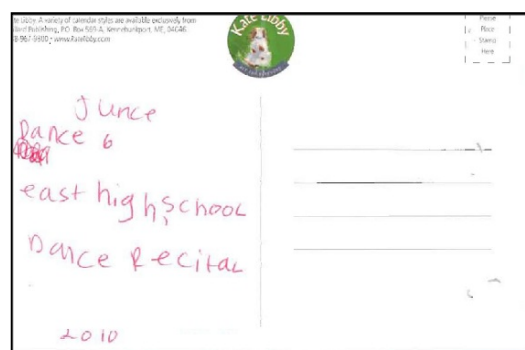 te Libby. A variety of calendar styles are available exclusively from
Publishing, P.O. Box 569-A, Kennebunkport, ME, 04046
www.katelibby.com
Kate Libby
Please
Place
Stamp
Here
Junce
Dance 6
east high school
Dance Recital
2010